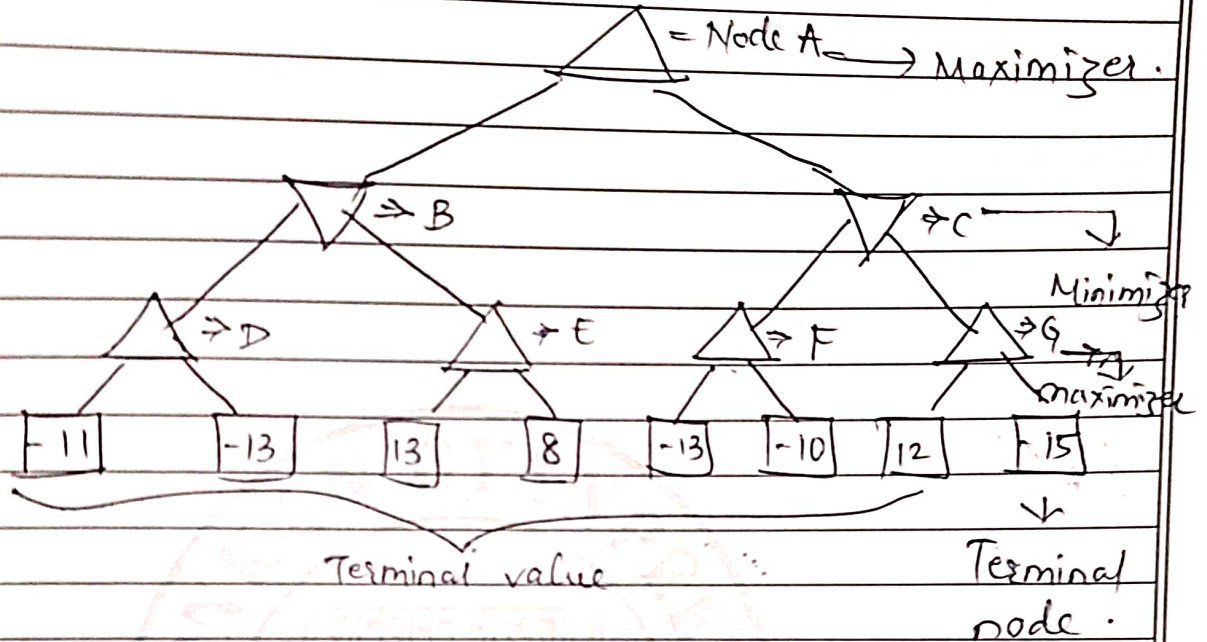 = Node A → Maximizer.
⇒ B
⇒ C
Minimizer
⇒ D
→ E
⇒ F
⇒ G
maximizer
-11 -13 13 8 -13 -10 12 -15
Terminal value
Terminal
node.